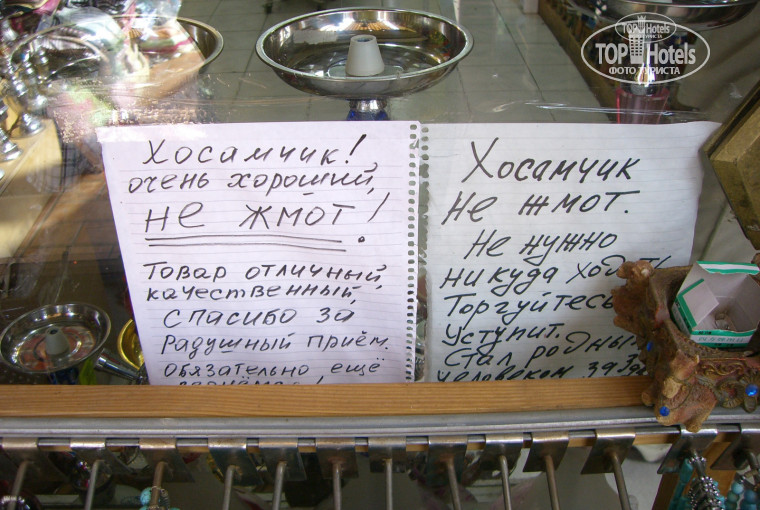 TOP Hotels
ТУРИСТА
ФОТО ТУРИСТА
Хосамчик!
очень хороший,
не жмот!
Товар отличный,
качественный,
спасибо за
радушный приём.
Обязательно ещё
Хосамчик
Не жмот.
Не нужно
никуда ходить!
Торгуйтесь
Уступит.
Стал родным
человеком за